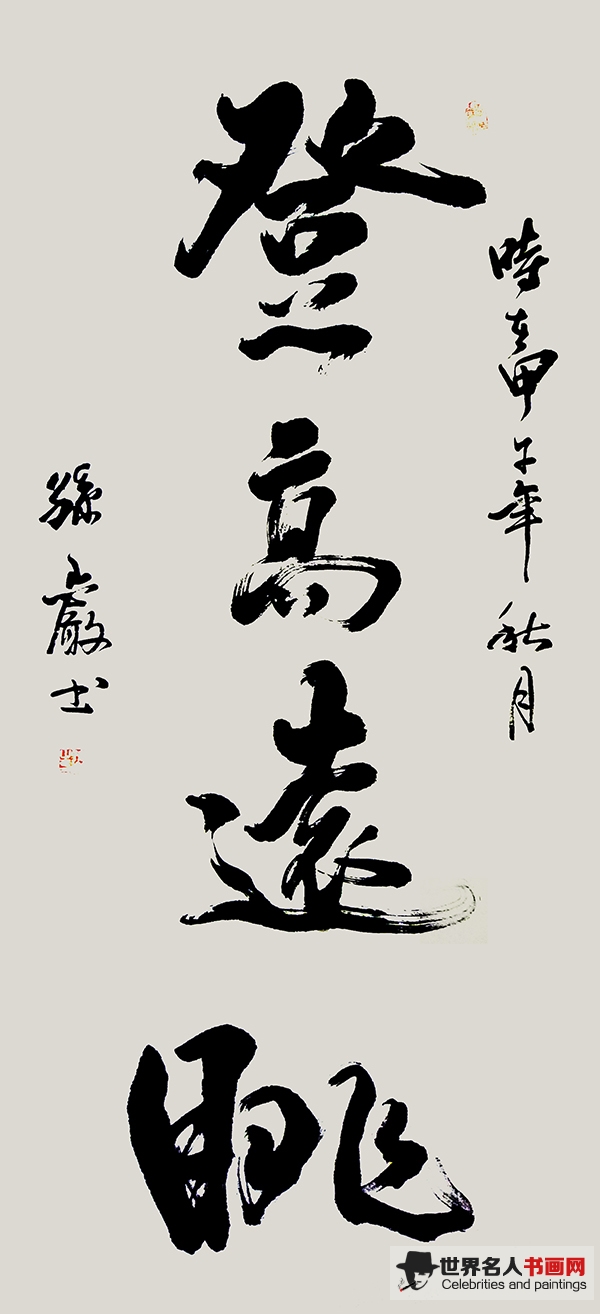 登高遠眺
時在甲午年秋月
孫巖书
世界名人书画网
Celebrities and paintings